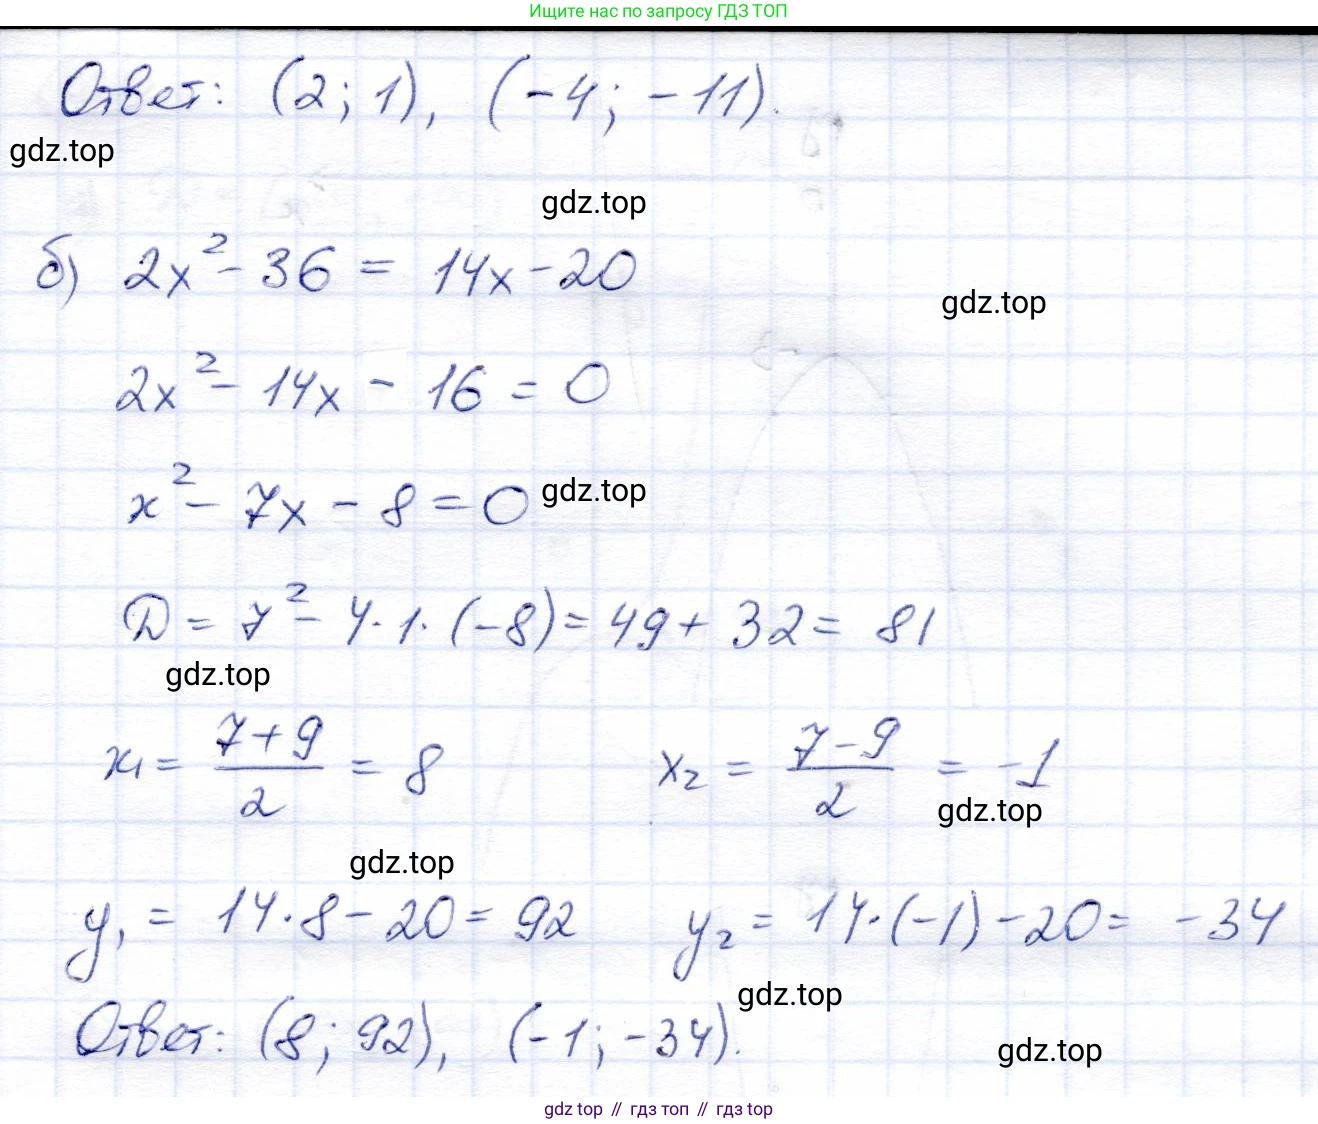 Ищите нас по запросу ГДЗ ТОП
Ответ: (2; 1), (-4; -11).
gdz.top
gdz.top
б) 2x² - 36 = 14x - 20
gdz.top
2x² - 14x - 16 = 0
x² - 7x - 8 = 0
gdz.top
D = 7² - 4·1·(-8) = 49 + 32 = 81
gdz.top
x₁ = (7+9)/2 = 8 x₂ = (7-9)/2 = -1
gdz.top
gdz.top
y₁ = 14·8 - 20 = 92 y₂ = 14·(-1) - 20 = -34
gdz.top
Ответ: (8; 92), (-1; -34).
gdz.top
gdz top // гдз топ // gdz top